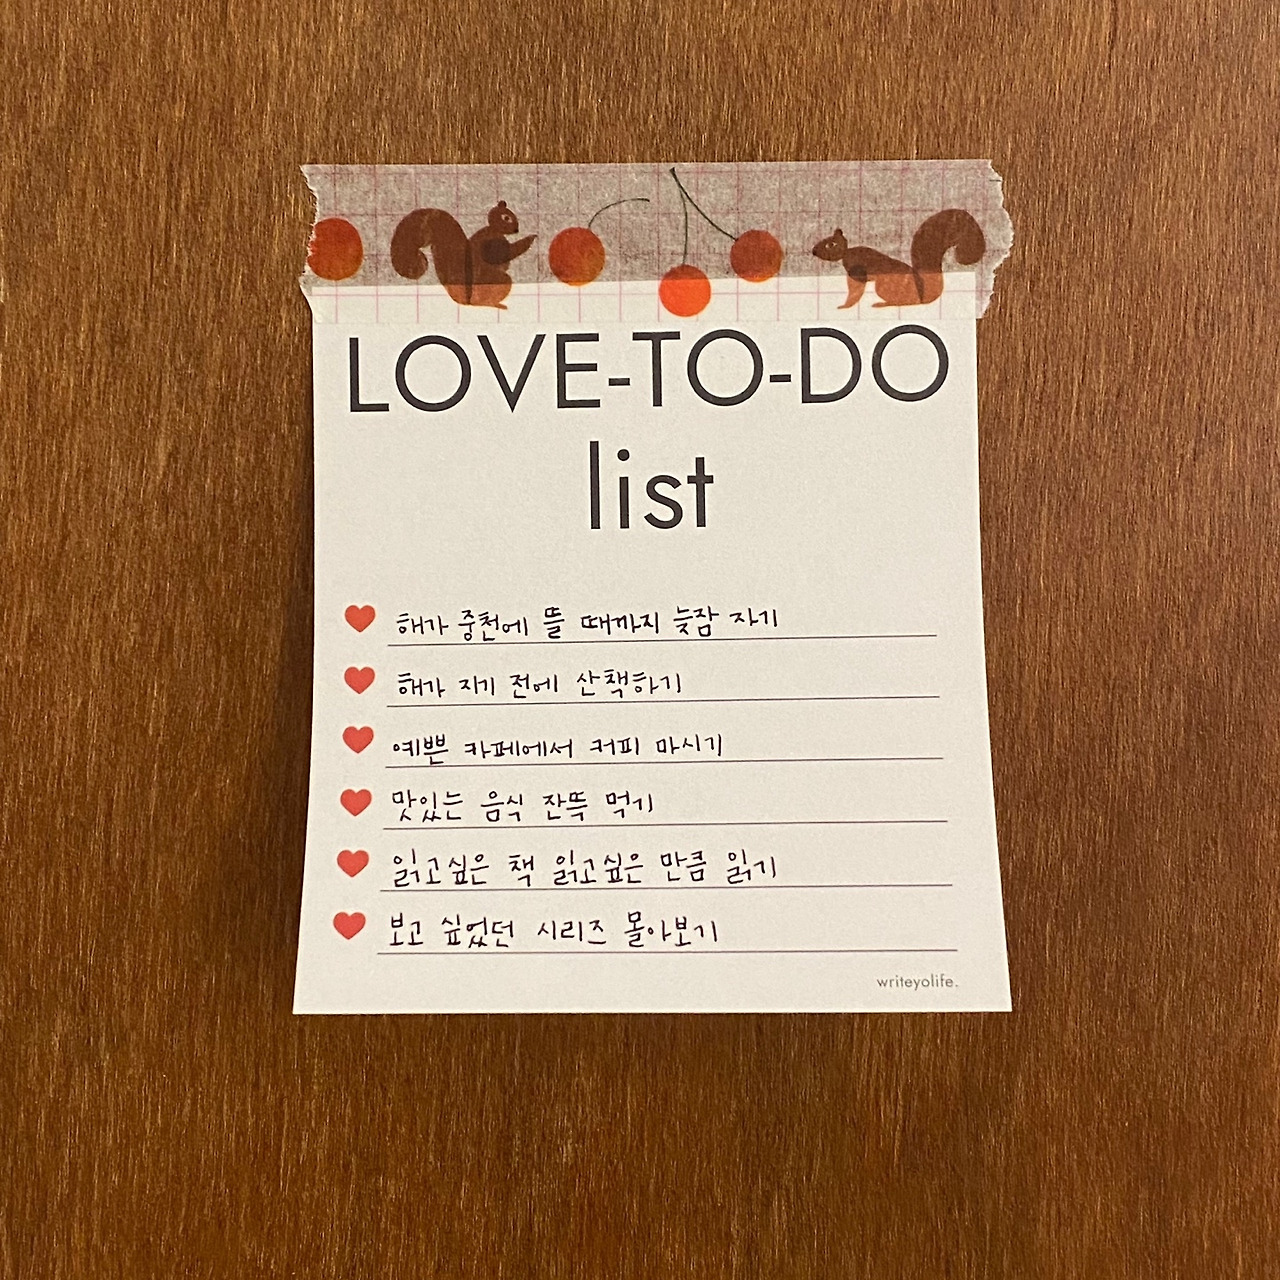 LOVE-TO-DO
list
해가 중천에 뜰 때까지 늦잠 자기
해가 지기 전에 산책하기
예쁜 카페에서 커피 마시기
맛있는 음식 잔뜩 먹기
읽고싶은 책 읽고싶은 만큼 읽기
보고 싶었던 시리즈 몰아보기
writeyolife.